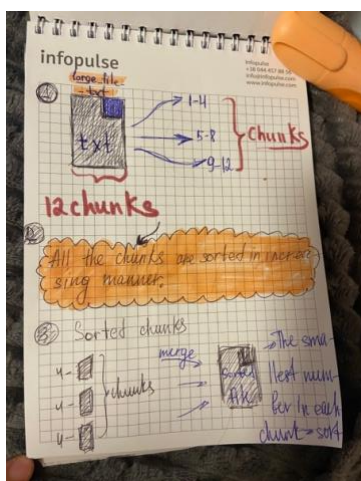 infopulse
infopulse
+38 044 457 88 56
info@infopulse.com
www.infopulse.com
large_file
.txt
1
txt
1-4
5-8
9-12
chunks
12 chunks
2
All the chunks are sorted in increa-
sing manner.
3 Sorted chunks
4-
4-
4-
chunks
merge
sorted
file
The sma-
llest num-
ber in each
chunk → sort